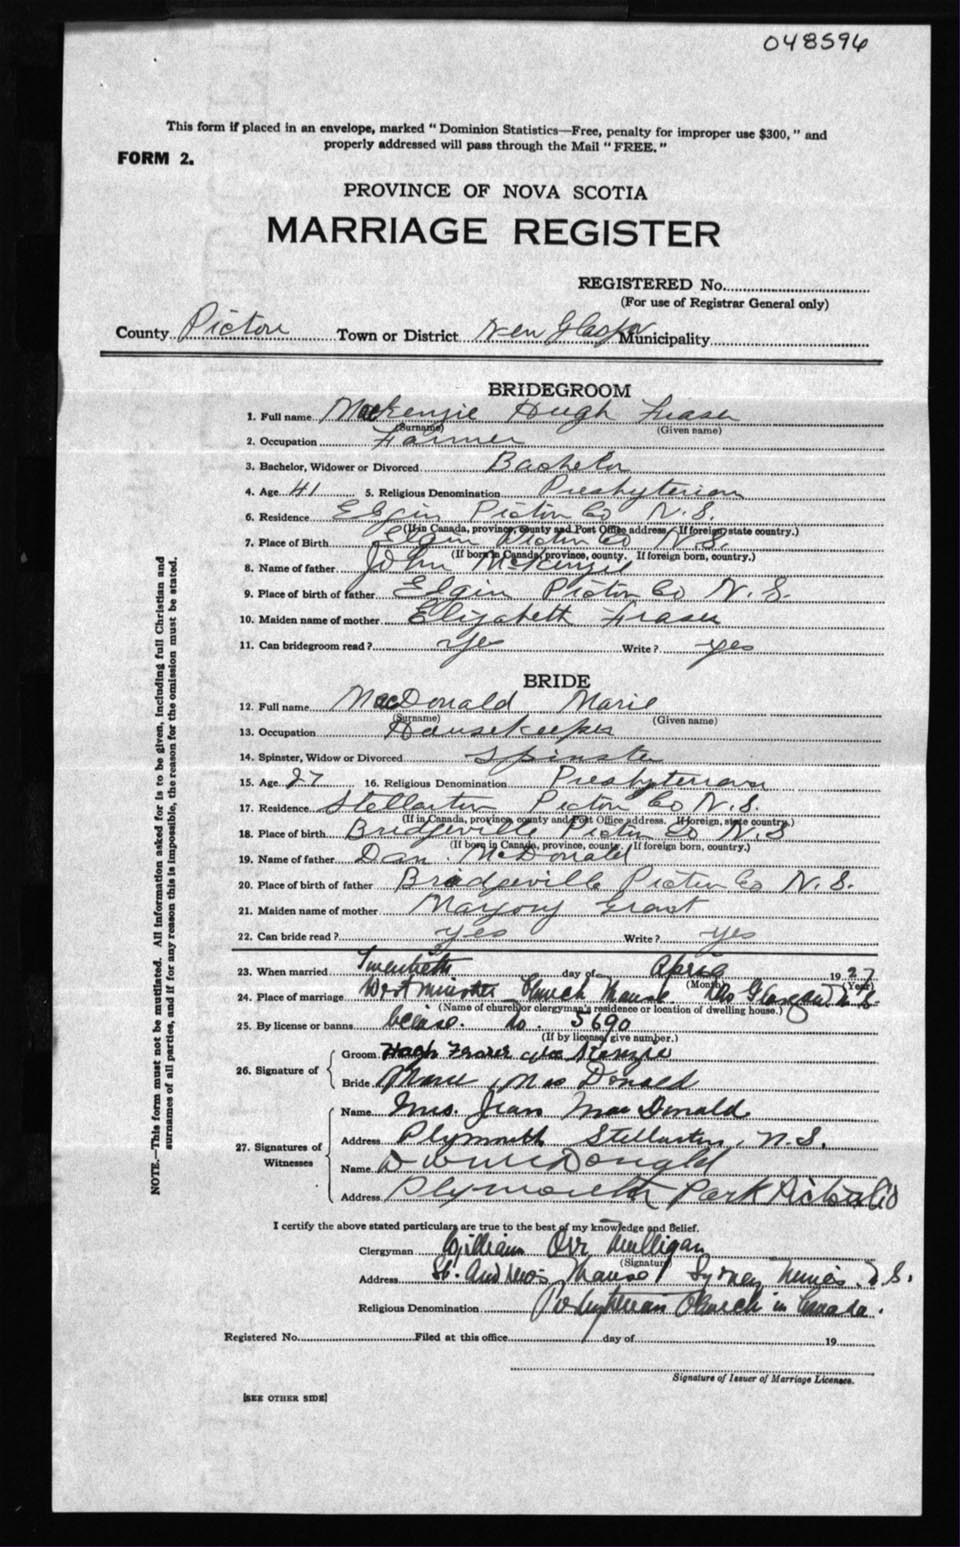 048596
This form if placed in an envelope, marked "Dominion Statistics—Free, penalty for improper use $300," and
properly addressed will pass through the Mail "FREE."
FORM 2.
PROVINCE OF NOVA SCOTIA
MARRIAGE REGISTER
REGISTERED No.
(For use of Registrar General only)
County Pictou Town or District New Glasgow Municipality
BRIDEGROOM
1. Full name MacKenzie Hugh Fraser
(Surname) (Given name)
2. Occupation Farmer
3. Bachelor, Widower or Divorced Bachelor
4. Age 41 5. Religious Denomination Presbyterian
6. Residence Elgin Pictou Co N.S.
(If in Canada, province, county and Post Office address. If foreign, state country.)
7. Place of Birth Elgin Pictou Co N.S.
(If born in Canada, province, county. If foreign born, country.)
8. Name of father John McKenzie
9. Place of birth of father Elgin Pictou Co N.S.
10. Maiden name of mother Elizabeth Fraser
11. Can bridegroom read? yes Write? yes
BRIDE
12. Full name MacDonald Marie
(Surname) (Given name)
13. Occupation Housekeeper
14. Spinster, Widow or Divorced Spinster
15. Age 27 16. Religious Denomination Presbyterian
17. Residence Stellarton Pictou Co N.S.
(If in Canada, province, county and Post Office address. If foreign, state country.)
18. Place of birth Bridgeville Pictou Co N.S
(If born in Canada, province, county. If foreign born, country.)
19. Name of father Dan McDonald
20. Place of birth of father Bridgeville Pictou Co N.S.
21. Maiden name of mother Marjory Grant
22. Can bride read? yes Write? yes
23. When married Twentieth day of April 1927
(Month) (Year)
24. Place of marriage Westminster Church Manse. New Glasgow N.S.
(Name of church or clergyman's residence or location of dwelling house.)
25. By license or banns license. No. 5690
(If by license, give number.)
26. Signature of
Groom Hugh Fraser MacKenzie
Bride Marie MacDonald
27. Signatures of Witnesses
Name Mrs. Jean MacDonald
Address Plymouth Stellarton, N.S.
Name D W McDonald
Address Plymouth Park Pictou Co
I certify the above stated particulars are true to the best of my knowledge and Belief.
Clergyman William Orr Mulligan
(Signature)
Address St. Andrew's Manse Sydney Mines. N.S.
Religious Denomination Presbyterian Church in Canada.
Registered No. Filed at this office day of 19
Signature of Issuer of Marriage Licenses.
[SEE OTHER SIDE]
NOTE.—This form must not be mutilated. All information asked for is to be given, including full Christian and
surnames of all parties, and if for any reason this is impossible, the reason for the omission must be stated.